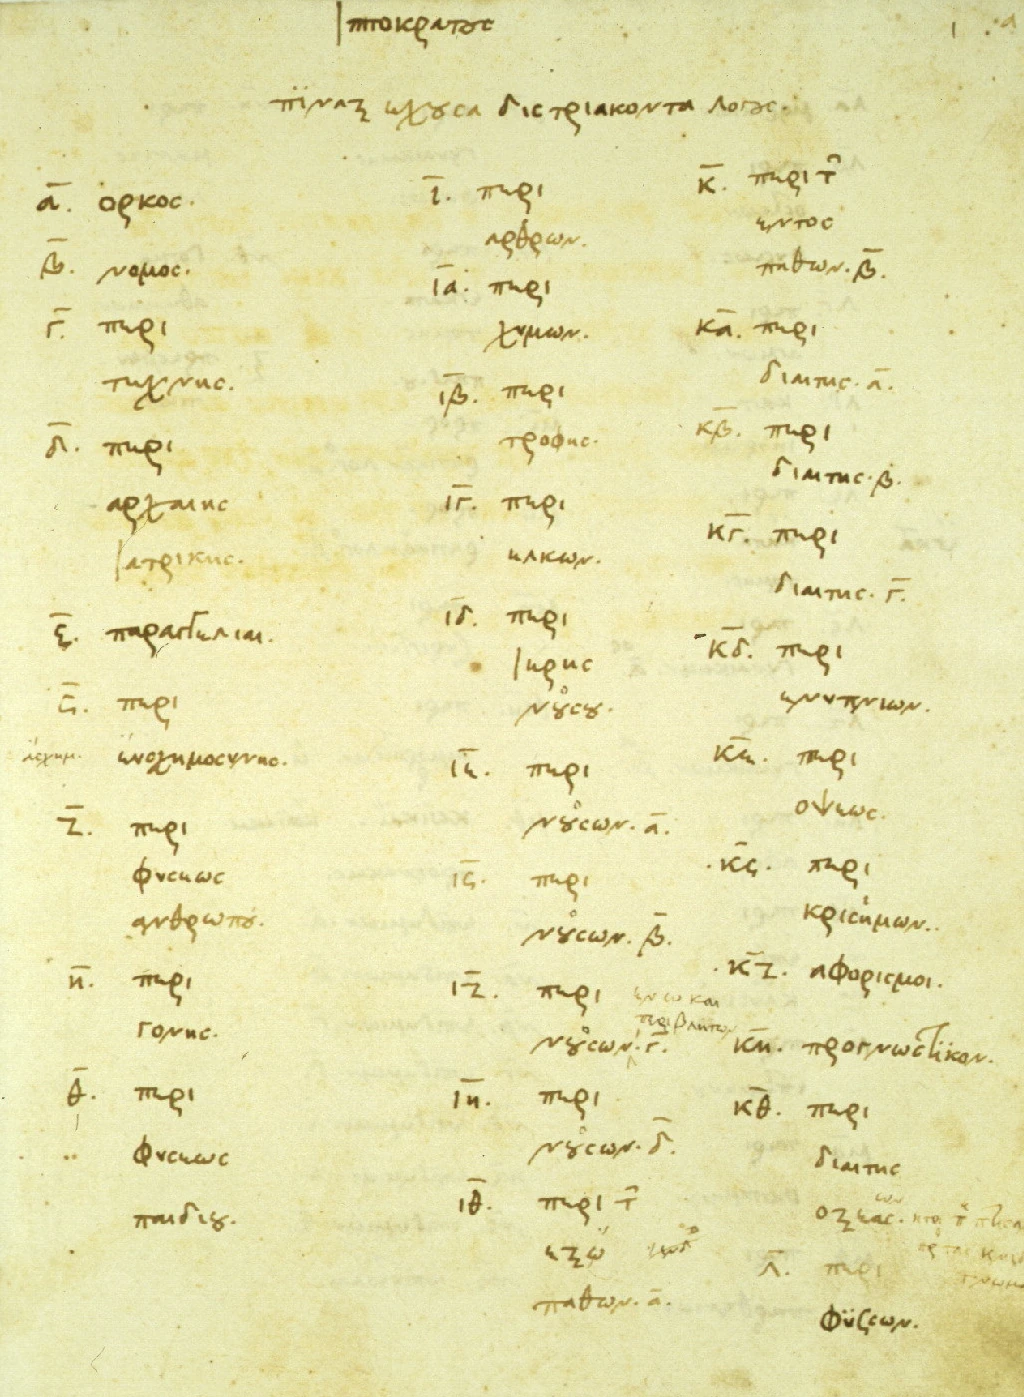 Ἱπποκράτους
πϊναξ ἔχουσα δὶς τριάκοντα λόγους.
ᾱ. ορκος.
β̄. νομος.
γ̄. περι
τεχνης.
δ̄. περι
αρχαιης
ϊατρικης.
ε̄. παραγγελιαι.
ϛ̄. περι
ευσχημοσυνης.
ζ̄. περι
φυσεως
ανθρωπου.
η̄. περι
γονης.
θ̄. περι
φυσεως
παιδιου.
ῑ. περι
αρθρων.
ῑᾱ. περι
χυμων.
ῑβ̄. περι
τροφης.
ῑγ̄. περι
ελκων.
ῑδ̄. περι
ϊερης
νουσου.
ῑε̄. περι
νουσων. ᾱ.
ῑϛ̄. περι
νουσων. β̄.
ῑζ̄. περι
νουσων. γ̄.
ῑη̄. περι
νουσων. δ̄.
ῑθ̄. περι τ
εξω
παθων. ᾱ.
κ̄. περι τ
εντος
παθων. β̄.
κ̄ᾱ. περι
διαιτης. ᾱ.
κ̄β̄. περι
διαιτης. β.
κ̄γ̄. περι
διαιτης. γ̄.
κ̄δ̄. περι
ενυπνιων.
κ̄ε̄. περι
οψεως.
κ̄ϛ̄. περι
κρισημων.
κ̄ζ̄. αφορισμοι.
κ̄η̄. προγνωστϊκον.
κ̄θ̄. περι
διαιτης
οξεας.
λ̄. περι
φϋσεων.